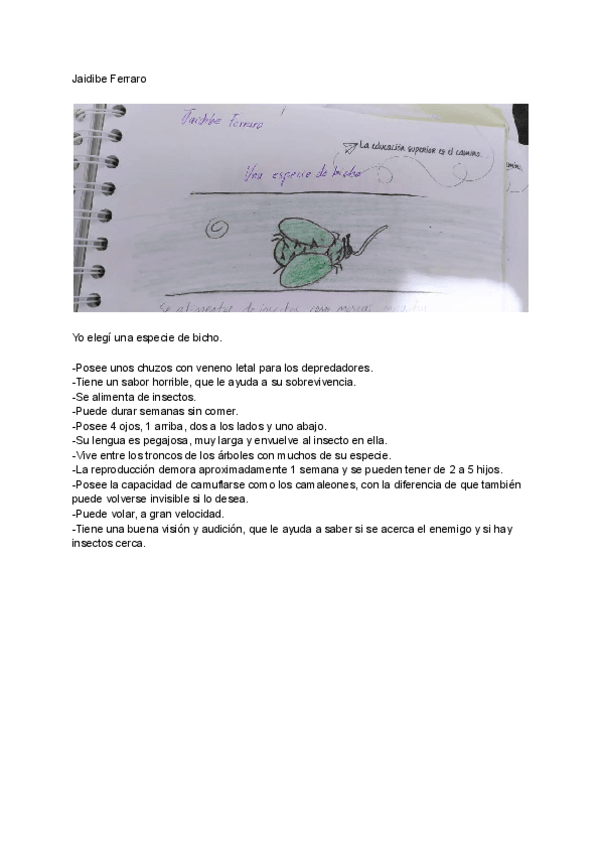 Jaidibe Ferraro
Jaidibe Ferraro
La educación superior es el camino.
Una especie de bicho
Se alimentas de insectos como moscas
Yo elegí una especie de bicho.
-Posee unos chuzos con veneno letal para los depredadores.
-Tiene un sabor horrible, que le ayuda a su sobrevivencia.
-Se alimenta de insectos.
-Puede durar semanas sin comer.
-Posee 4 ojos, 1 arriba, dos a los lados y uno abajo.
-Su lengua es pegajosa, muy larga y envuelve al insecto en ella.
-Vive entre los troncos de los árboles con muchos de su especie.
-La reproducción demora aproximadamente 1 semana y se pueden tener de 2 a 5 hijos.
-Posee la capacidad de camuflarse como los camaleones, con la diferencia de que también
puede volverse invisible si lo desea.
-Puede volar, a gran velocidad.
-Tiene una buena visión y audición, que le ayuda a saber si se acerca el enemigo y si hay
insectos cerca.